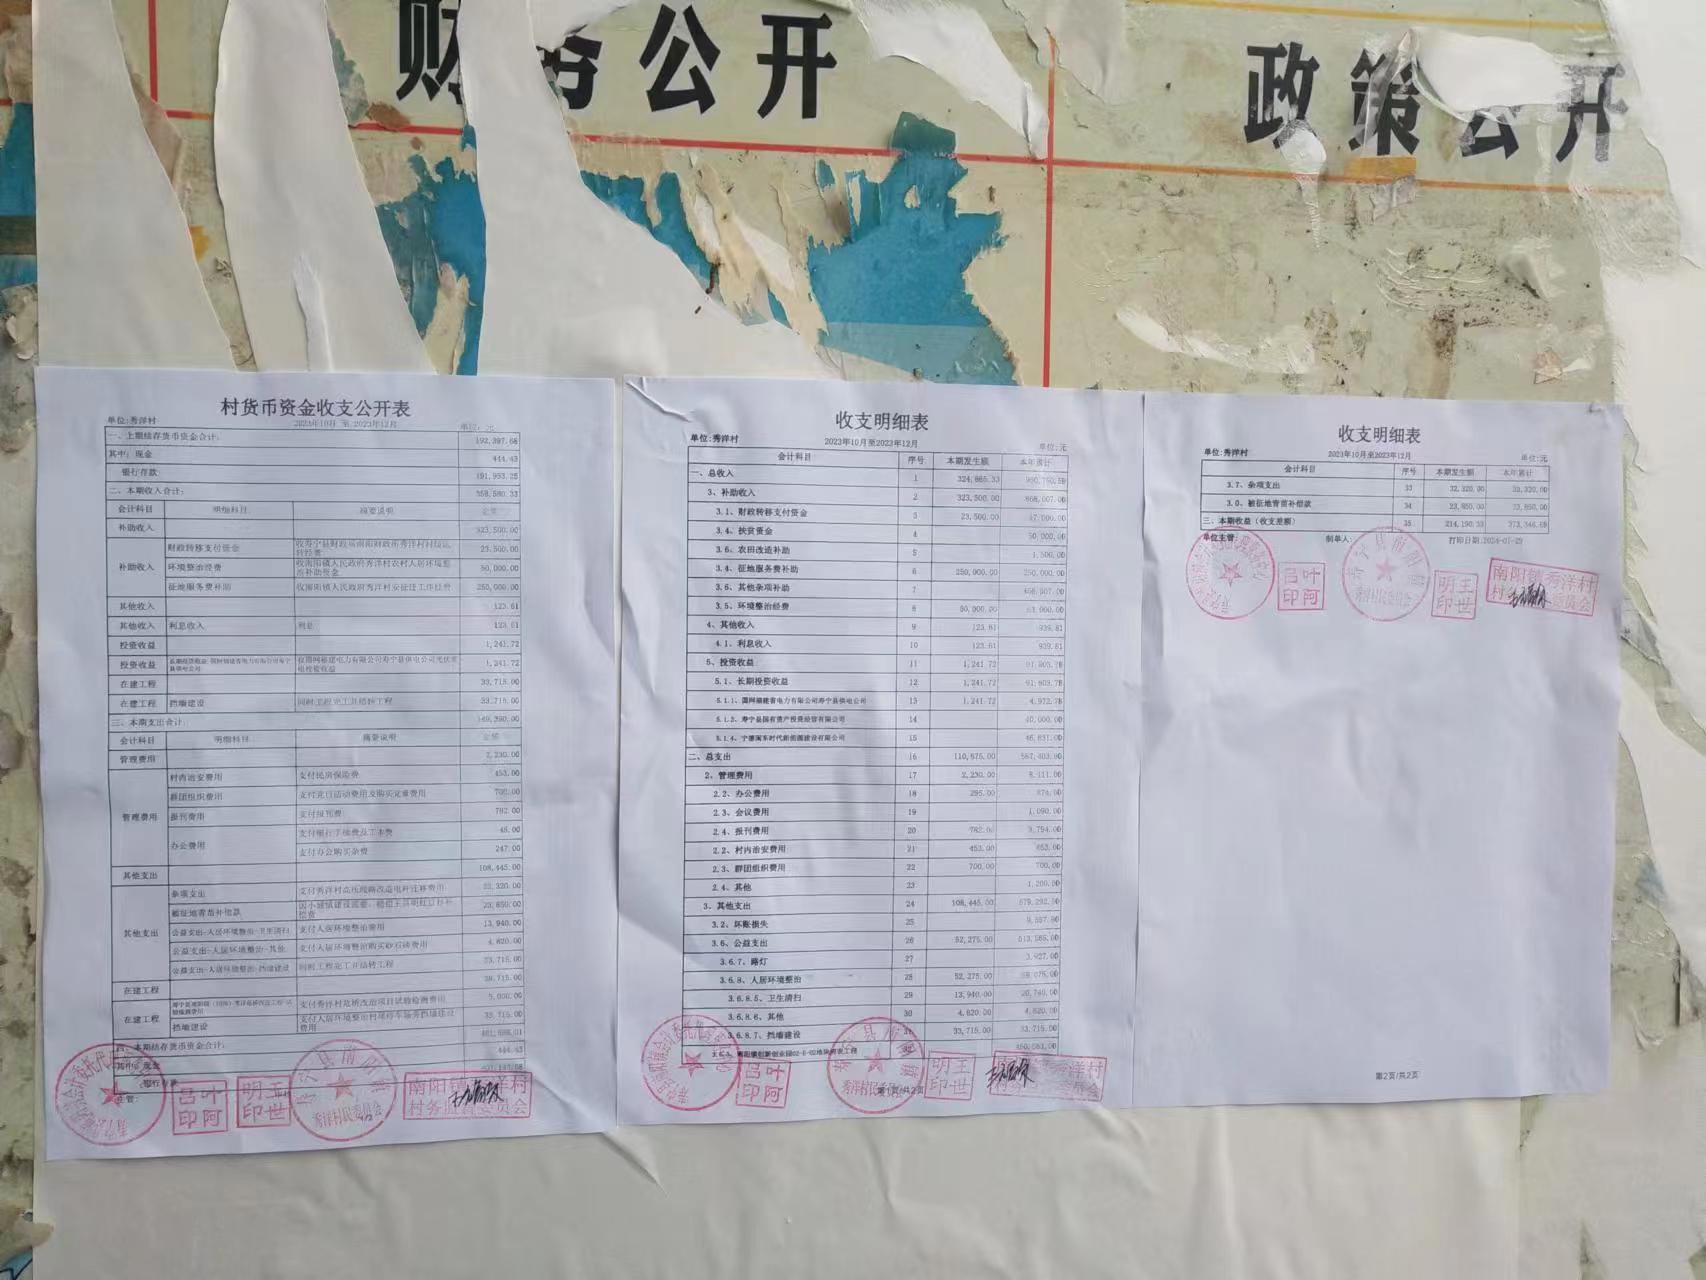 财务公开
政策公开
村货币资金收支公开表
单位:秀洋村 2023年10月 至 2023年12月 单位: 元
一、上期结存货币资金合计: 192,397.68
其中: 现金 444.43
银行存款 191,953.25
二、本期收入合计: 358,580.33
会计科目 明细科目 摘要说明 金额
补助收入 323,500.00
补助收入 财政转移支付资金 23,500.00
环境整治经费 50,000.00
征地服务费补助 250,000.00
其他收入 123.61
其他收入 利息收入 利息 123.61
投资收益 1,241.72
投资收益 1,241.72
在建工程 33,715.00
在建工程 挡墙建设 33,715.00
三、本期支出合计:
会计科目 明细科目 摘要说明 金额
管理费用 2,230.00
管理费用 村内治安费用 支付民房保险费 453.00
群团组织费用 700.00
报刊费用 支付报刊费 782.00
办公费用 支付银行手续费及工本费 48.00
支付办公购买杂费 247.00
其他支出 108,445.00
其他支出 杂项支出 支付秀洋村高压线路改造电杆迁移费用 32,320.00
被征地青苗补偿款 23,850.00
公益支出-人居环境整治-卫生清扫 支付人居环境整治费用 13,940.00
公益支出-人居环境整治-其他 支付人居环境整治购买砂石砖费用 4,620.00
公益支出-人居环境整治-挡墙建设 33,715.00
在建工程 38,715.00
在建工程 支付秀洋村危桥改造项目试验检测费用 5,000.00
挡墙建设 33,715.00
四、本期结存货币资金合计:
其中: 现金 444.43
银行存款
收支明细表
单位:秀洋村 2023年10月至2023年12月 单位:元
会计科目 序号 本期发生额 本年累计
一、总收入 1 324,865.33
3、补助收入 2 323,500.00 868,007.00
3.1、财政转移支付资金 3 23,500.00 47,000.00
3.4、扶贫资金 4 50,000.00
3.6、农田改造补助 5 1,500.00
3.4、征地服务费补助 6 250,000.00 250,000.00
3.6、其他杂项补助 7
3.5、环境整治经费 8 50,000.00
4、其他收入 9 123.61 939.81
4.1、利息收入 10 123.61 939.81
5、投资收益 11 1,241.72 91,803.78
5.1、长期投资收益 12 1,241.72 91,803.78
5.1.1、国网福建省电力有限公司寿宁县供电公司 13 1,241.72 4,972.78
5.1.3、寿宁县国有资产投资经营有限公司 14 40,000.00
5.1.4、宁德闽东时代新能源建设有限公司 15 46,831.00
二、总支出 16 110,675.00 587,403.90
2、管理费用 17 2,230.00 8,111.00
2.2、办公费用 18 295.00 874.00
2.3、会议费用 19 1,090.00
2.4、报刊费用 20 782.00 3,794.00
2.2、村内治安费用 21 453.00 453.00
2.3、群团组织费用 22 700.00 700.00
2.4、其他 23 1,200.00
3、其他支出 24 108,445.00 579,292.90
3.2、坏账损失 25
3.6、公益支出 26 52,275.00 513,565.00
3.6.7、路灯 27 3,927.00
3.6.8、人居环境整治 28 52,275.00
3.6.8.5、卫生清扫 29 13,940.00 20,740.00
3.6.8.6、其他 30 4,620.00 4,620.00
3.6.8.7、挡墙建设 31 33,715.00 33,715.00
第1页/共2页
收支明细表
单位:秀洋村 2023年10月至2023年12月 单位:元
会计科目 序号 本期发生额 本年累计
3.7、杂项支出 33 32,320.00 33,320.00
3.0、被征地青苗补偿款 34 23,850.00 23,850.00
三、本期收益(收支差额) 35 214,190.33 373,346.69
单位主管: 制单人: 打印日期:2024-01-29
吕叶阿印
王世明印
南阳镇秀洋村
村务监督委员会
秀洋村民委员会
第2页/共2页